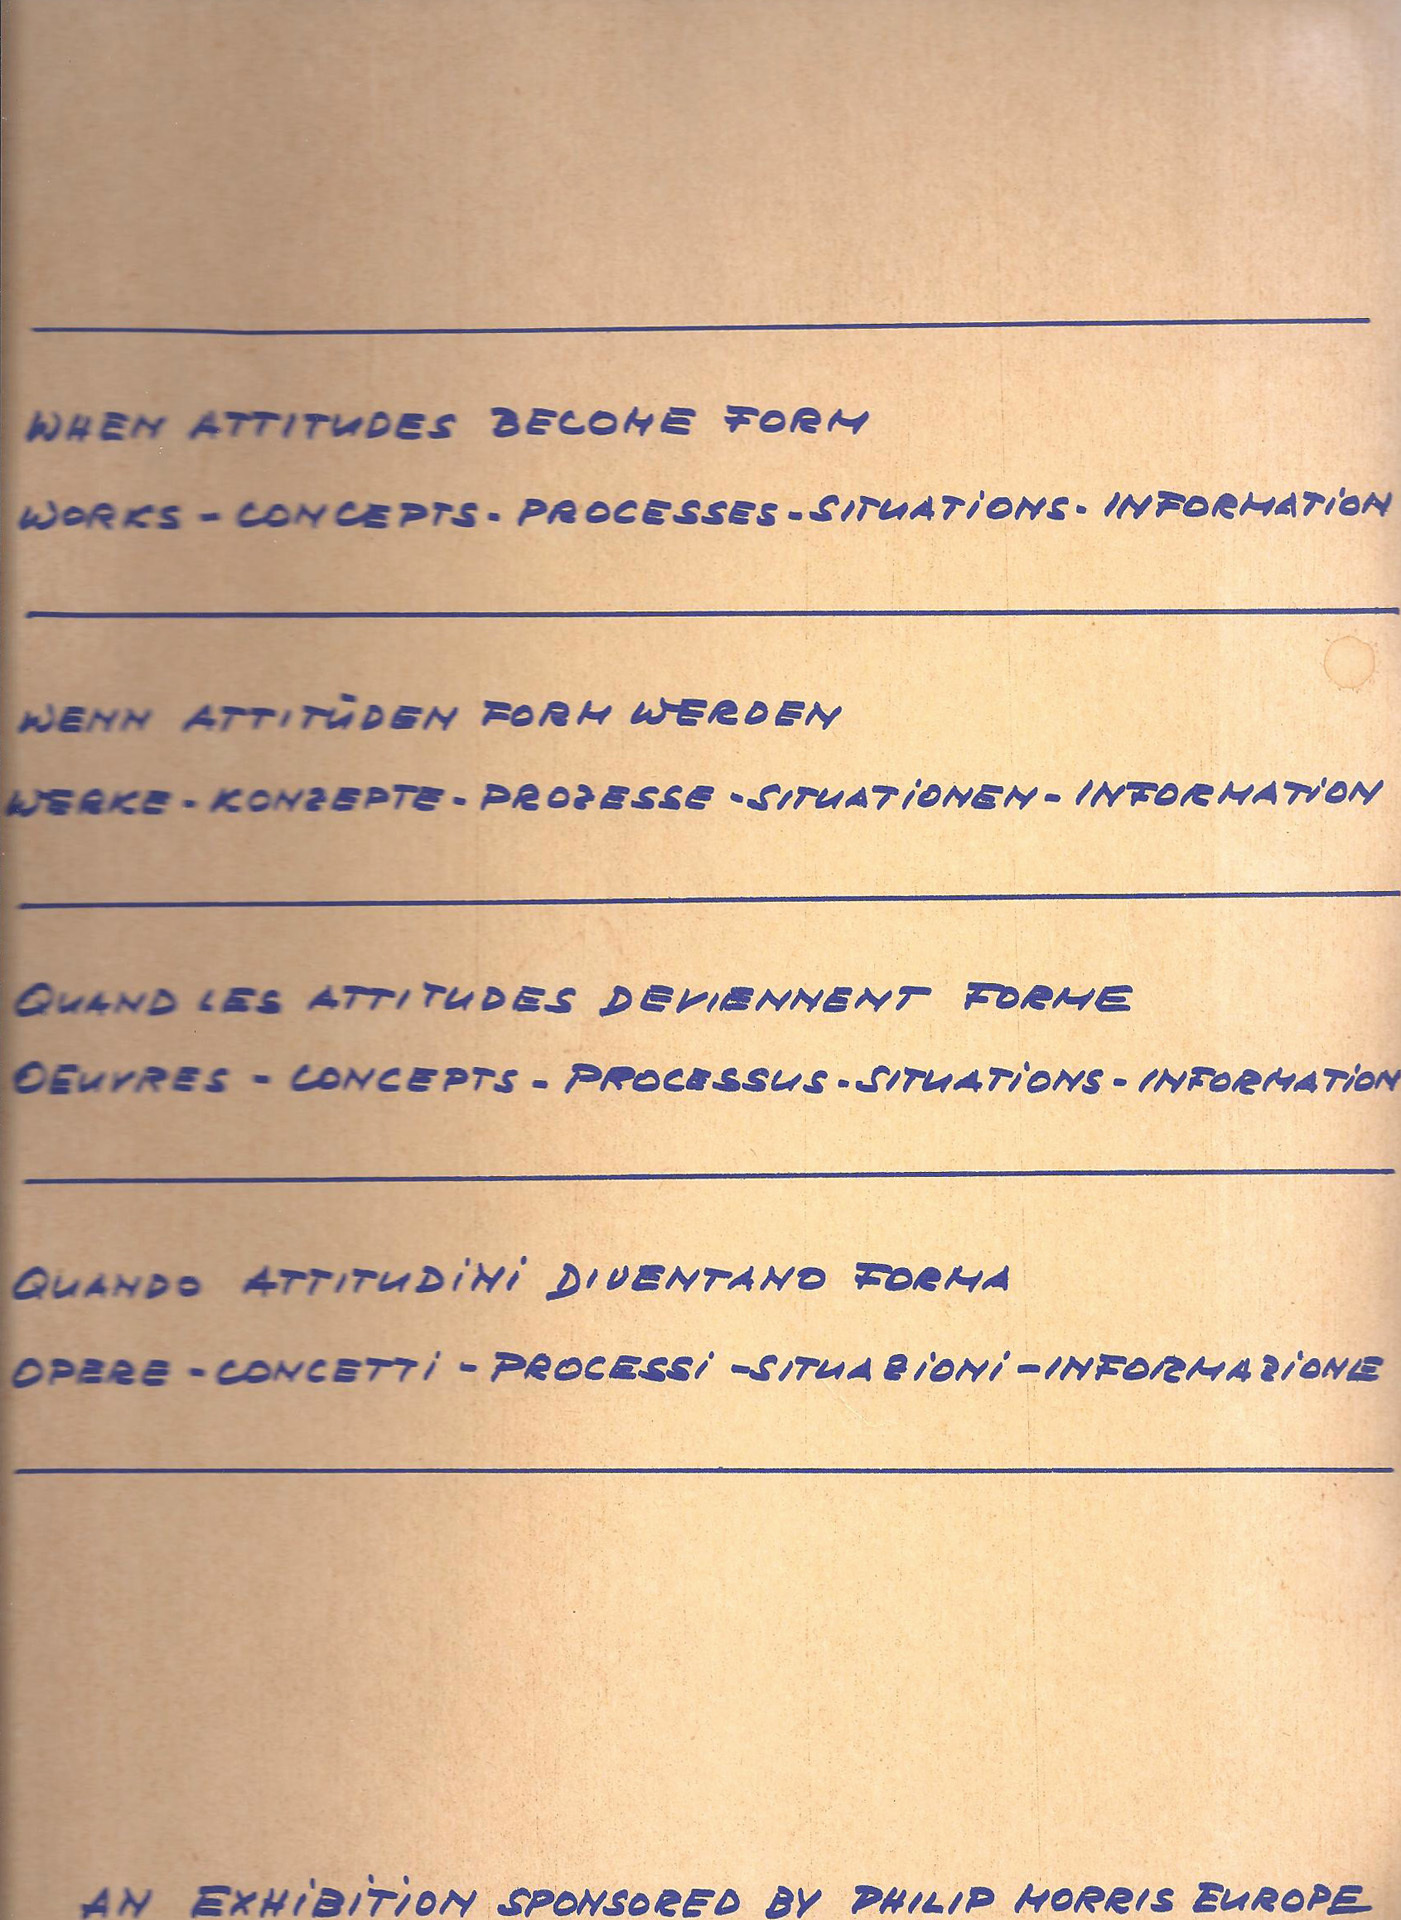 WHEN ATTITUDES BECOME FORM
WORKS - CONCEPTS - PROCESSES - SITUATIONS - INFORMATION
WENN ATTITÜDEN FORM WERDEN
WERKE - KONZEPTE - PROZESSE - SITUATIONEN - INFORMATION
QUAND LES ATTITUDES DEVIENNENT FORME
OEUVRES - CONCEPTS - PROCESSUS - SITUATIONS - INFORMATION
QUANDO ATTITUDiNi DIVENTANO FORMA
OPERE - CONCETTi - PROCESSi - SITUAZiONi - INFORMAZiONE
AN EXHiBiTiON SPONSORED BY PHILIP MORRIS EUROPE